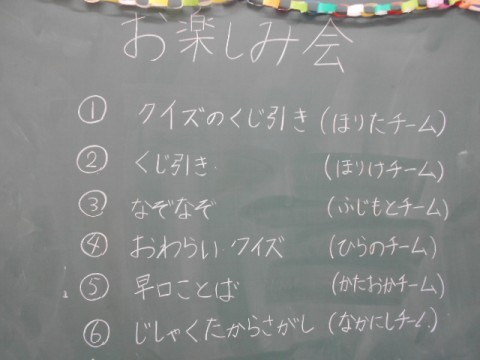 お楽しみ会
① クイズのくじ引き (ほりたチーム)
② くじ引き (ほりけチーム)
③ なぞなぞ (ふじもとチーム)
④ おわらいクイズ (ひらのチーム)
⑤ 早口ことば (かたおかチーム)
⑥ じしゃくたからさがし (なかにしチーム)